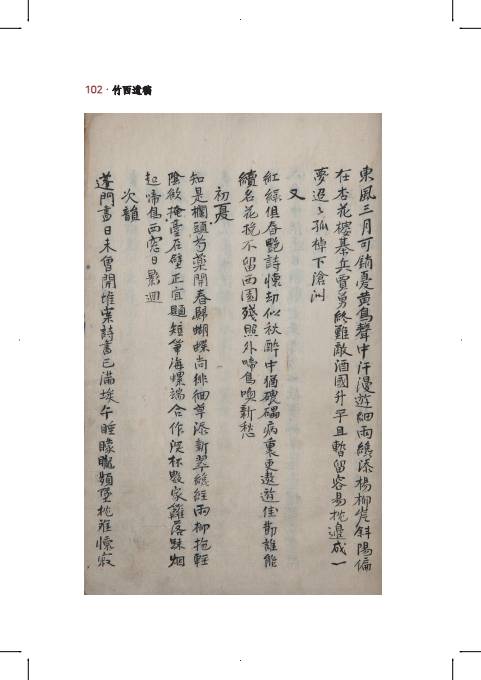 102 · 竹西遺稿
東風三月可銷憂黃鳥聲中汗漫遊細雨纔添楊柳岸斜陽偏
在杏花樓棊兵賈勇終難敵酒國升平且暫留容易枕邊成一
夢迢〻孤棹下滄洲
又
紅綠俱春艶詩懷却似秋醉中猶磈磊病裏更遨遊佳勒誰能
續名花挽不留西園殘照外啼鳥喚新愁
初夏
知是欄頭芍藥開春歸蝴蝶尚徘徊草添新翠纔經雨柳拖輕
陰欲掩臺在壁正宜題短筆海螺端合作深杯數家籬落踈烟
起啼鳥西窓日影迴
次韻
蓬門盡日未曾開堆案詩書已滿埃午睡朦朧頻墜枕羇懷寂